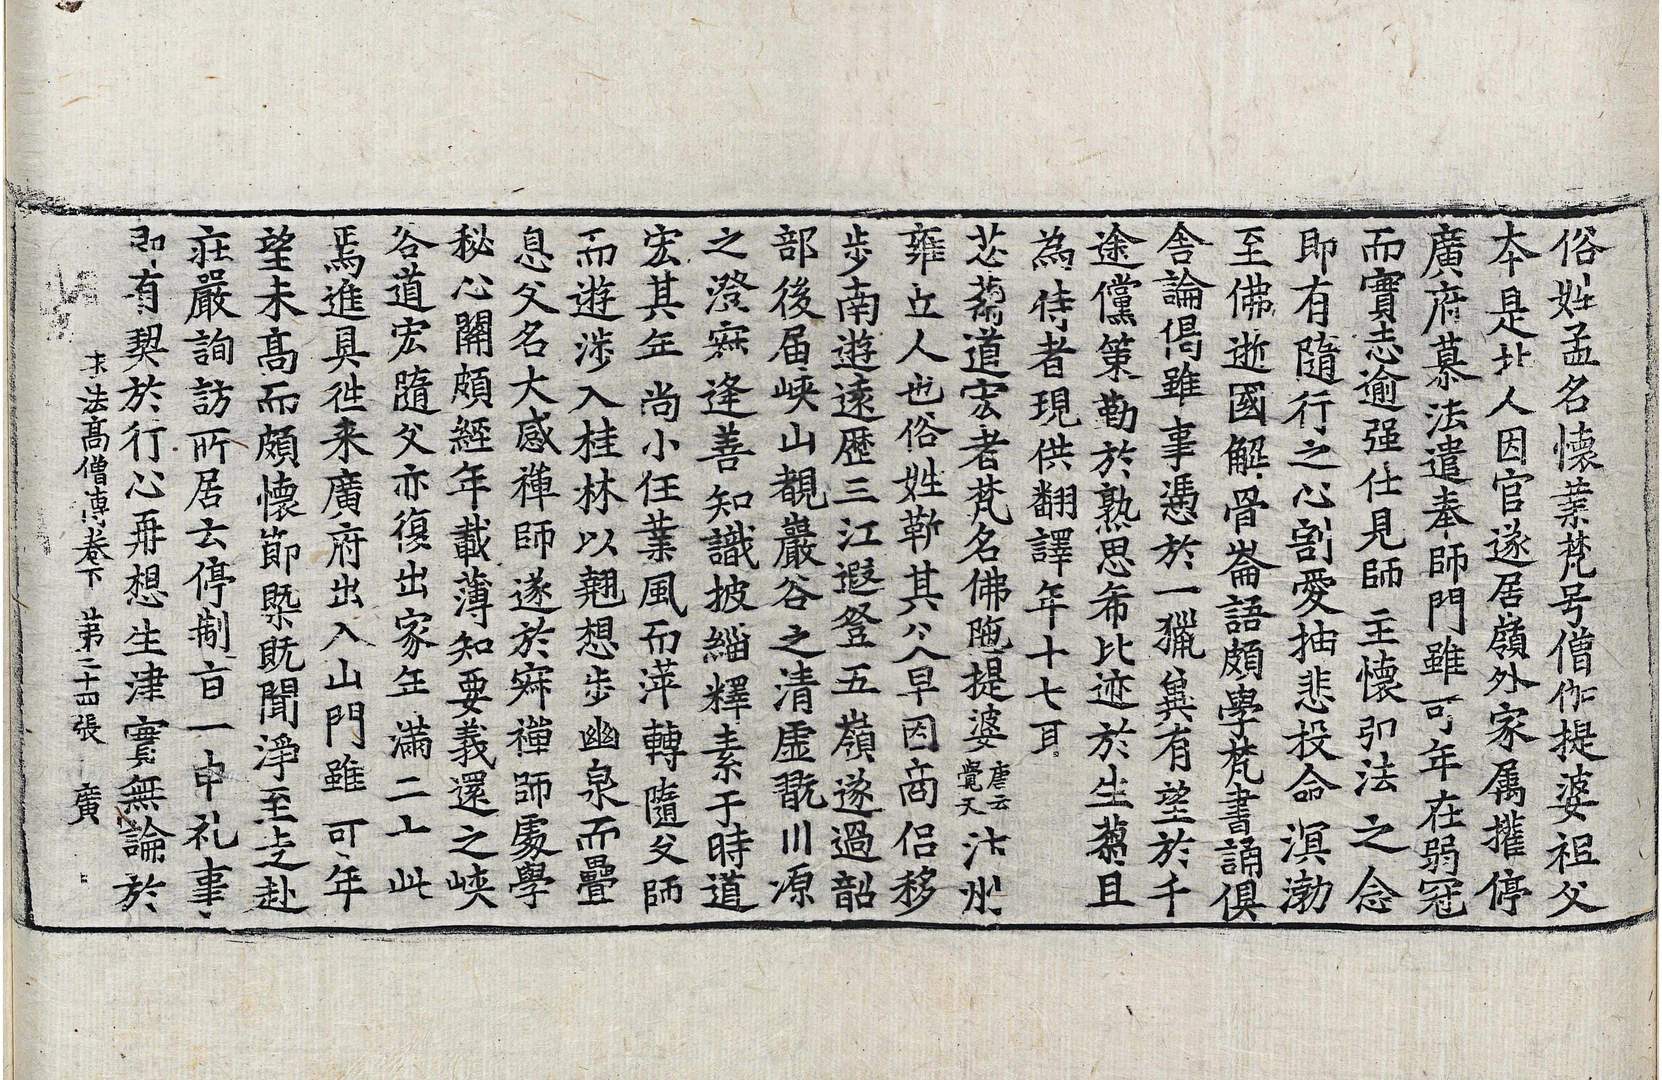 俗姓孟名懷業梵号僧伽提婆祖父
夲是北人因官遂居嶺外家属攉停
廣府慕法遣奉師門雖可年在弱冠
而實志逾强仕見師主懷弘法之念
即有隨行之心割愛抽悲投命溟渤
至佛逝國解骨崙語頗學梵書誦俱
舍論偈雖事憑於一獵兾有望於千
途儻策勤於熟思希比迹於生蒭且
為侍者現供翻譯年十七耳
苾蒭道宏者梵名佛陁提婆唐云覺天汴州
雍丘人也俗姓靳其父早因商侣移
步南遊遠歷三江遐登五嶺遂過韶
部後届峽山覩巖谷之清虚翫川源
之澄寂逢善知識披緇釋素于時道
宏其年尚小任業風而萍轉隨父師
而遊涉入桂林以翹想步幽泉而疊
息父名大感禅師遂於寂禪師處學
秘心關頗經年載薄知要義還之峽
谷道宏隨父亦復出家年滿二十此
焉進具徃来廣府出入山門雖可年
望未髙而頗懷節槩既聞淨至走赴
莊嚴詢訪所居云停制旨一申礼事
即有契於行心再想生津實無論於
求法髙僧傳卷下 苐二十四張 廣